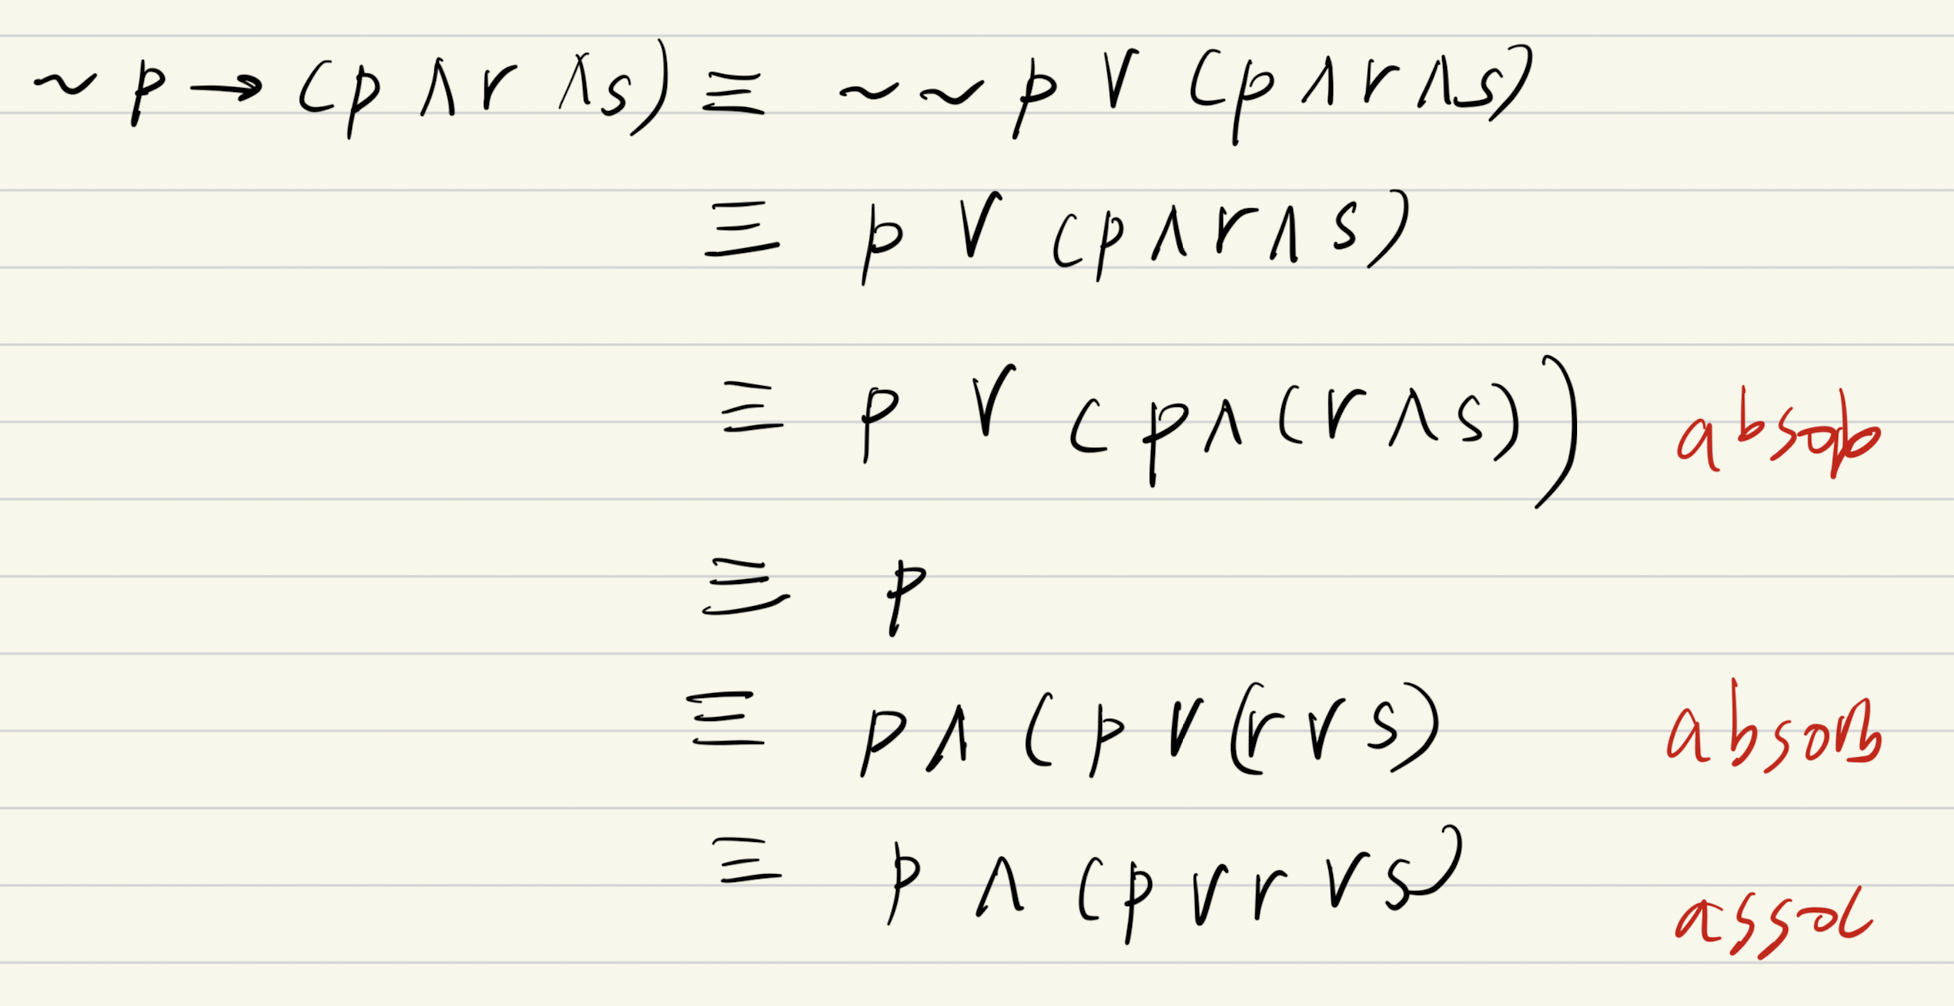 ~ p → (p ∧ r ∧ s) ≡ ~ ~ p ∨ (p ∧ r ∧ s)
≡ p ∨ (p ∧ r ∧ s)
≡ p ∨ (p ∧ (r ∧ s)) absop
≡ p
≡ p ∧ (p ∨ (r ∨ s) absorb
≡ p ∧ (p ∨ r ∨ s) assoc